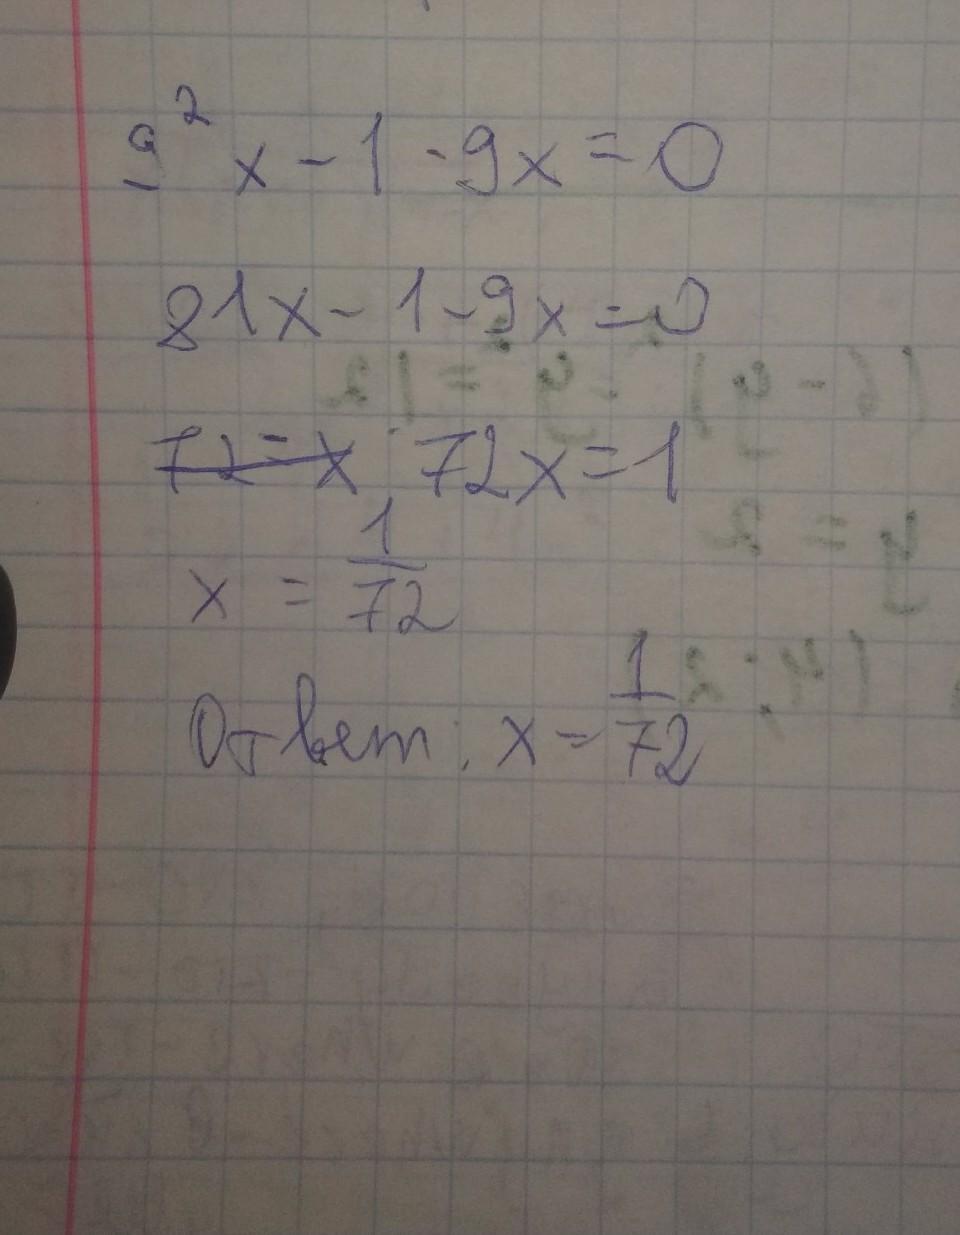 9² x - 1 - 9x = 0
81x - 1 - 9x = 0
72 = x 72x = 1
x = 1/72
Ответ: x = 1/72